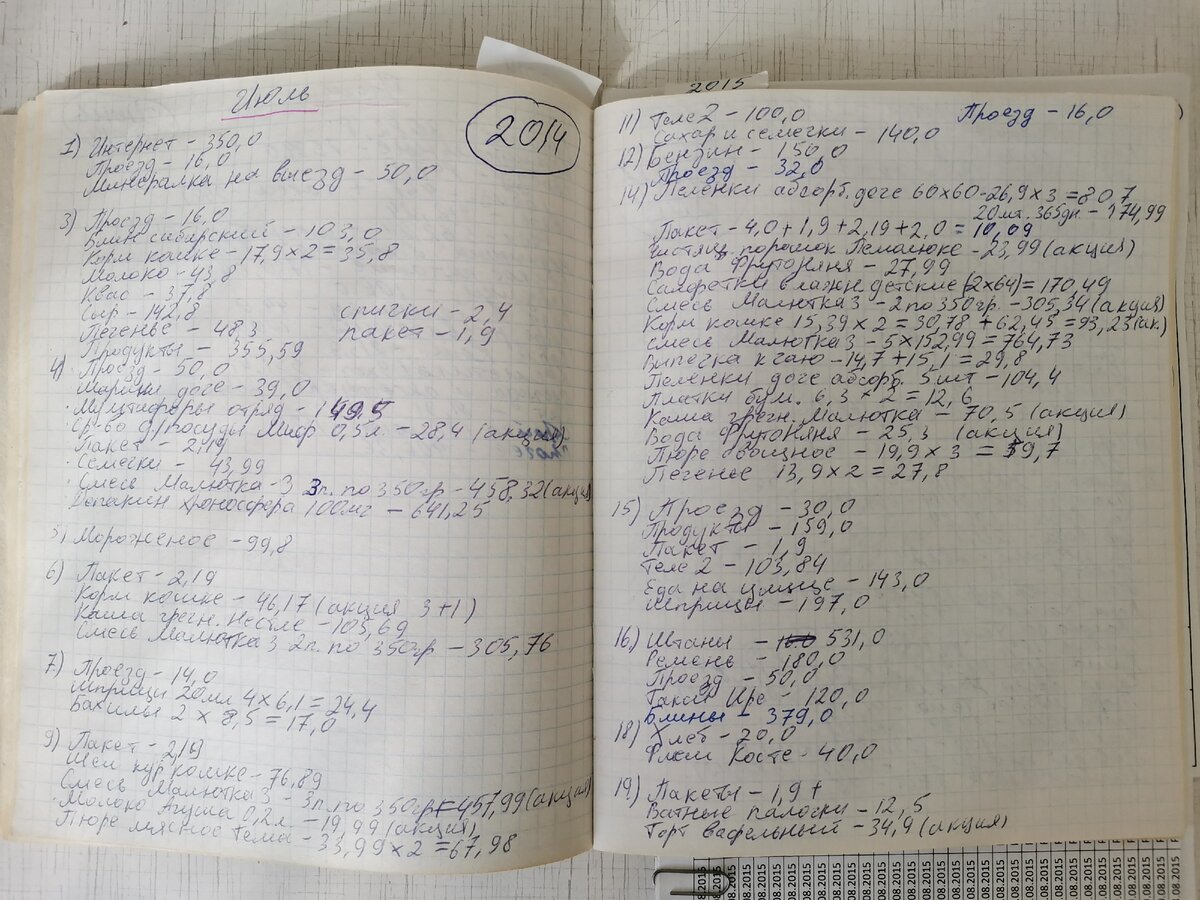 Июль
2014
1) Интернет - 350,0
Проезд - 16,0
Минералка на выезд - 50,0
3) Проезд - 16,0
Блин сибирский - 103,0
Корм кошке - 17,9 × 2 = 35,8
Молоко - 43,8
Квас - 37,8
Сыр - 142,8
спички - 2,4
Печенье - 48,3
пакет - 1,9
Продукты - 355,59
4) Проезд - 50,0
доге - 39,0
Мультифоры отряд - 149,5
Ср-во д/посуды Миф 0,5 л. - 28,4 (акция)
Пакет - 2,19
Семечки - 43,99
Смесь Малютка-3 3п. по 350гр - 458,32 (акция)
Депакин хроносфера 100мг - 641,25
5) Мороженое - 99,8
6) Пакет - 2,19
Корм кошке - 46,17 (акция 3+1)
Каша гречн. Нестле - 103,69
Смесь Малютка 3 2п. по 350гр - 305,76
7) Проезд - 14,0
Шприцы 20мл 4 × 6,1 = 24,4
Бахилы 2 × 8,5 = 17,0
9) Пакет - 2,19
Шеи кур кошке - 76,89
Смесь Малютка 3 - 3п. по 350гр - 457,99 (акция)
Молоко Агуша 0,2л. - 19,99 (акция)
Пюре мясное Тёма - 33,99 × 2 = 67,98
2015
11) Теле 2 - 100,0
Проезд - 16,0
Сахар и семечки - 140,0
12) Бензин - 150,0
Проезд - 32,0
14) Пеленки абсорб. доге 60×60 - 26,9 × 3 = 80 7
20шт. 365дн - 174,99
Пакет - 4,0 + 1,9 + 2,19 + 2,0 = 10,09
Чистящ. порошок Пемолюкс - 23,99 (акция)
Вода ФрутоНяня - 27,99
Салфетки влажн. детские (2×64) = 170,49
Смесь Малютка 3 - 2 по 350гр. - 305,34 (акция)
Корм кошке 15,39 × 2 = 30,78 + 62,45 = 93,23 (ак.)
Смесь Малютка 3 - 5 × 152,99 = 764,73
Выпечка к чаю - 14,7 + 15,1 = 29,8
Пеленки доге абсорб. 5шт - 104,4
Платки бум. 6,3 × 2 = 12,6
Каша гречн. Малютка - 70,5 (акция)
Вода ФрутоНяня - 25,3 (акция)
Пюре овощное - 19,9 × 3 = 59,7
Печенье 13,9 × 2 = 27,8
15) Проезд - 30,0
Продукты - 159,0
Пакет - 1,9
Теле 2 - 103,84
Еда на улице - 143,0
Шприцы - 197,0
16) Штаны - 531,0
Ремень - 180,0
Проезд - 50,0
Такси Ире - 120,0
Блины - 379,0
18) Хлеб - 20,0
Флеш Косте - 40,0
19) Пакеты - 1,9 +
Ватные палочки - 12,5
Торт вафельный - 34,9 (акция)